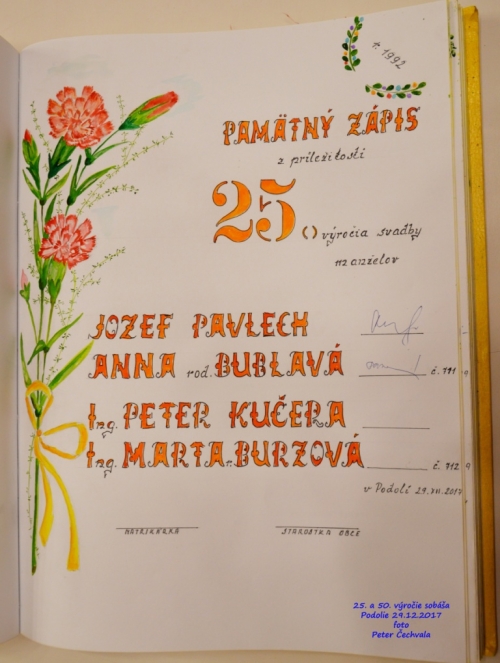 r. 1992
PAMÄTNÝ ZÁPIS
z príležitosti
25. výročia svadby
manželov
JOZEF PAVLECH
ANNA rod. BUBLAVÁ č. 711
Ing. PETER KUČERA
Ing. MARTA r. BURZOVÁ č. 712
v Podolí 29. XII. 2017
MATRIKÁRKA STAROSTKA OBCE
25. a 50. výročie sobáša
Podolie 29.12.2017
foto
Peter Čechvala